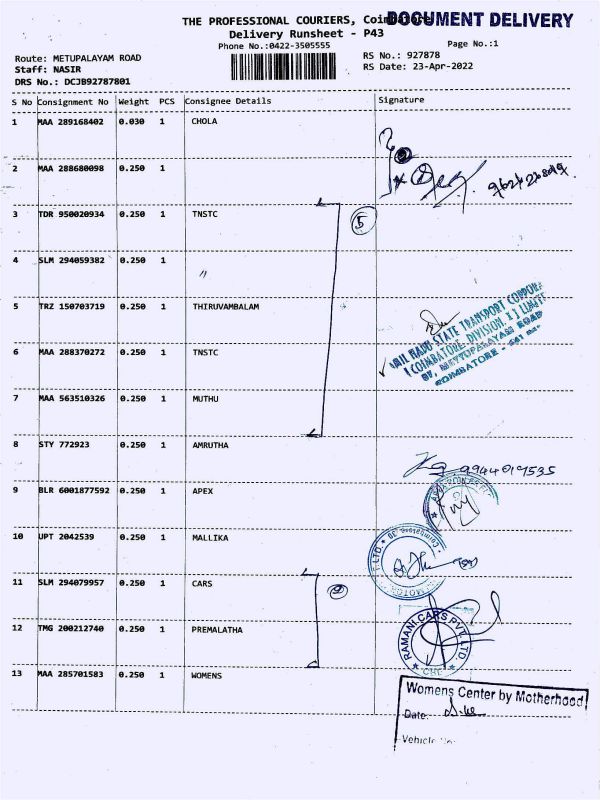 DOCUMENT DELIVERY
THE PROFESSIONAL COURIERS, Coimbatore
Delivery Runsheet - P43
Phone No.:0422-3505555
Page No.:1
Route: METUPALAYAM ROAD
RS No.: 927878
Staff: NASIR
RS Date: 23-Apr-2022
DRS No.: DCJB92787801
S No Consignment No Weight PCS Consignee Details Signature
1 MAA 289168402 0.030 1 CHOLA
2 MAA 288680098 0.250 1
3 TDR 950020934 0.250 1 TNSTC
5
4 SLM 294059382 0.250 1
〃
5 TRZ 150703719 0.250 1 THIRUVAMBALAM
TAMIL NADU STATE TRANSPORT CORPORA
(COIMBATORE, DIVISION I) LIMITE
METTUPALAYAM ROAD
COIMBATORE - 641
6 MAA 288370272 0.250 1 TNSTC
7 MAA 563510326 0.250 1 MUTHU
8 STY 772923 0.250 1 AMRUTHA
9944017535
9 BLR 6001877592 0.250 1 APEX
10 UPT 2042539 0.250 1 MALLIKA
11 SLM 294079957 0.250 1 CARS
2
12 TMG 200212740 0.250 1 PREMALATHA
RAMANI CARS PVT LTD
CBE
13 MAA 285701583 0.250 1 WOMENS
Womens Center by Motherhood
Date:
Vehicle No.